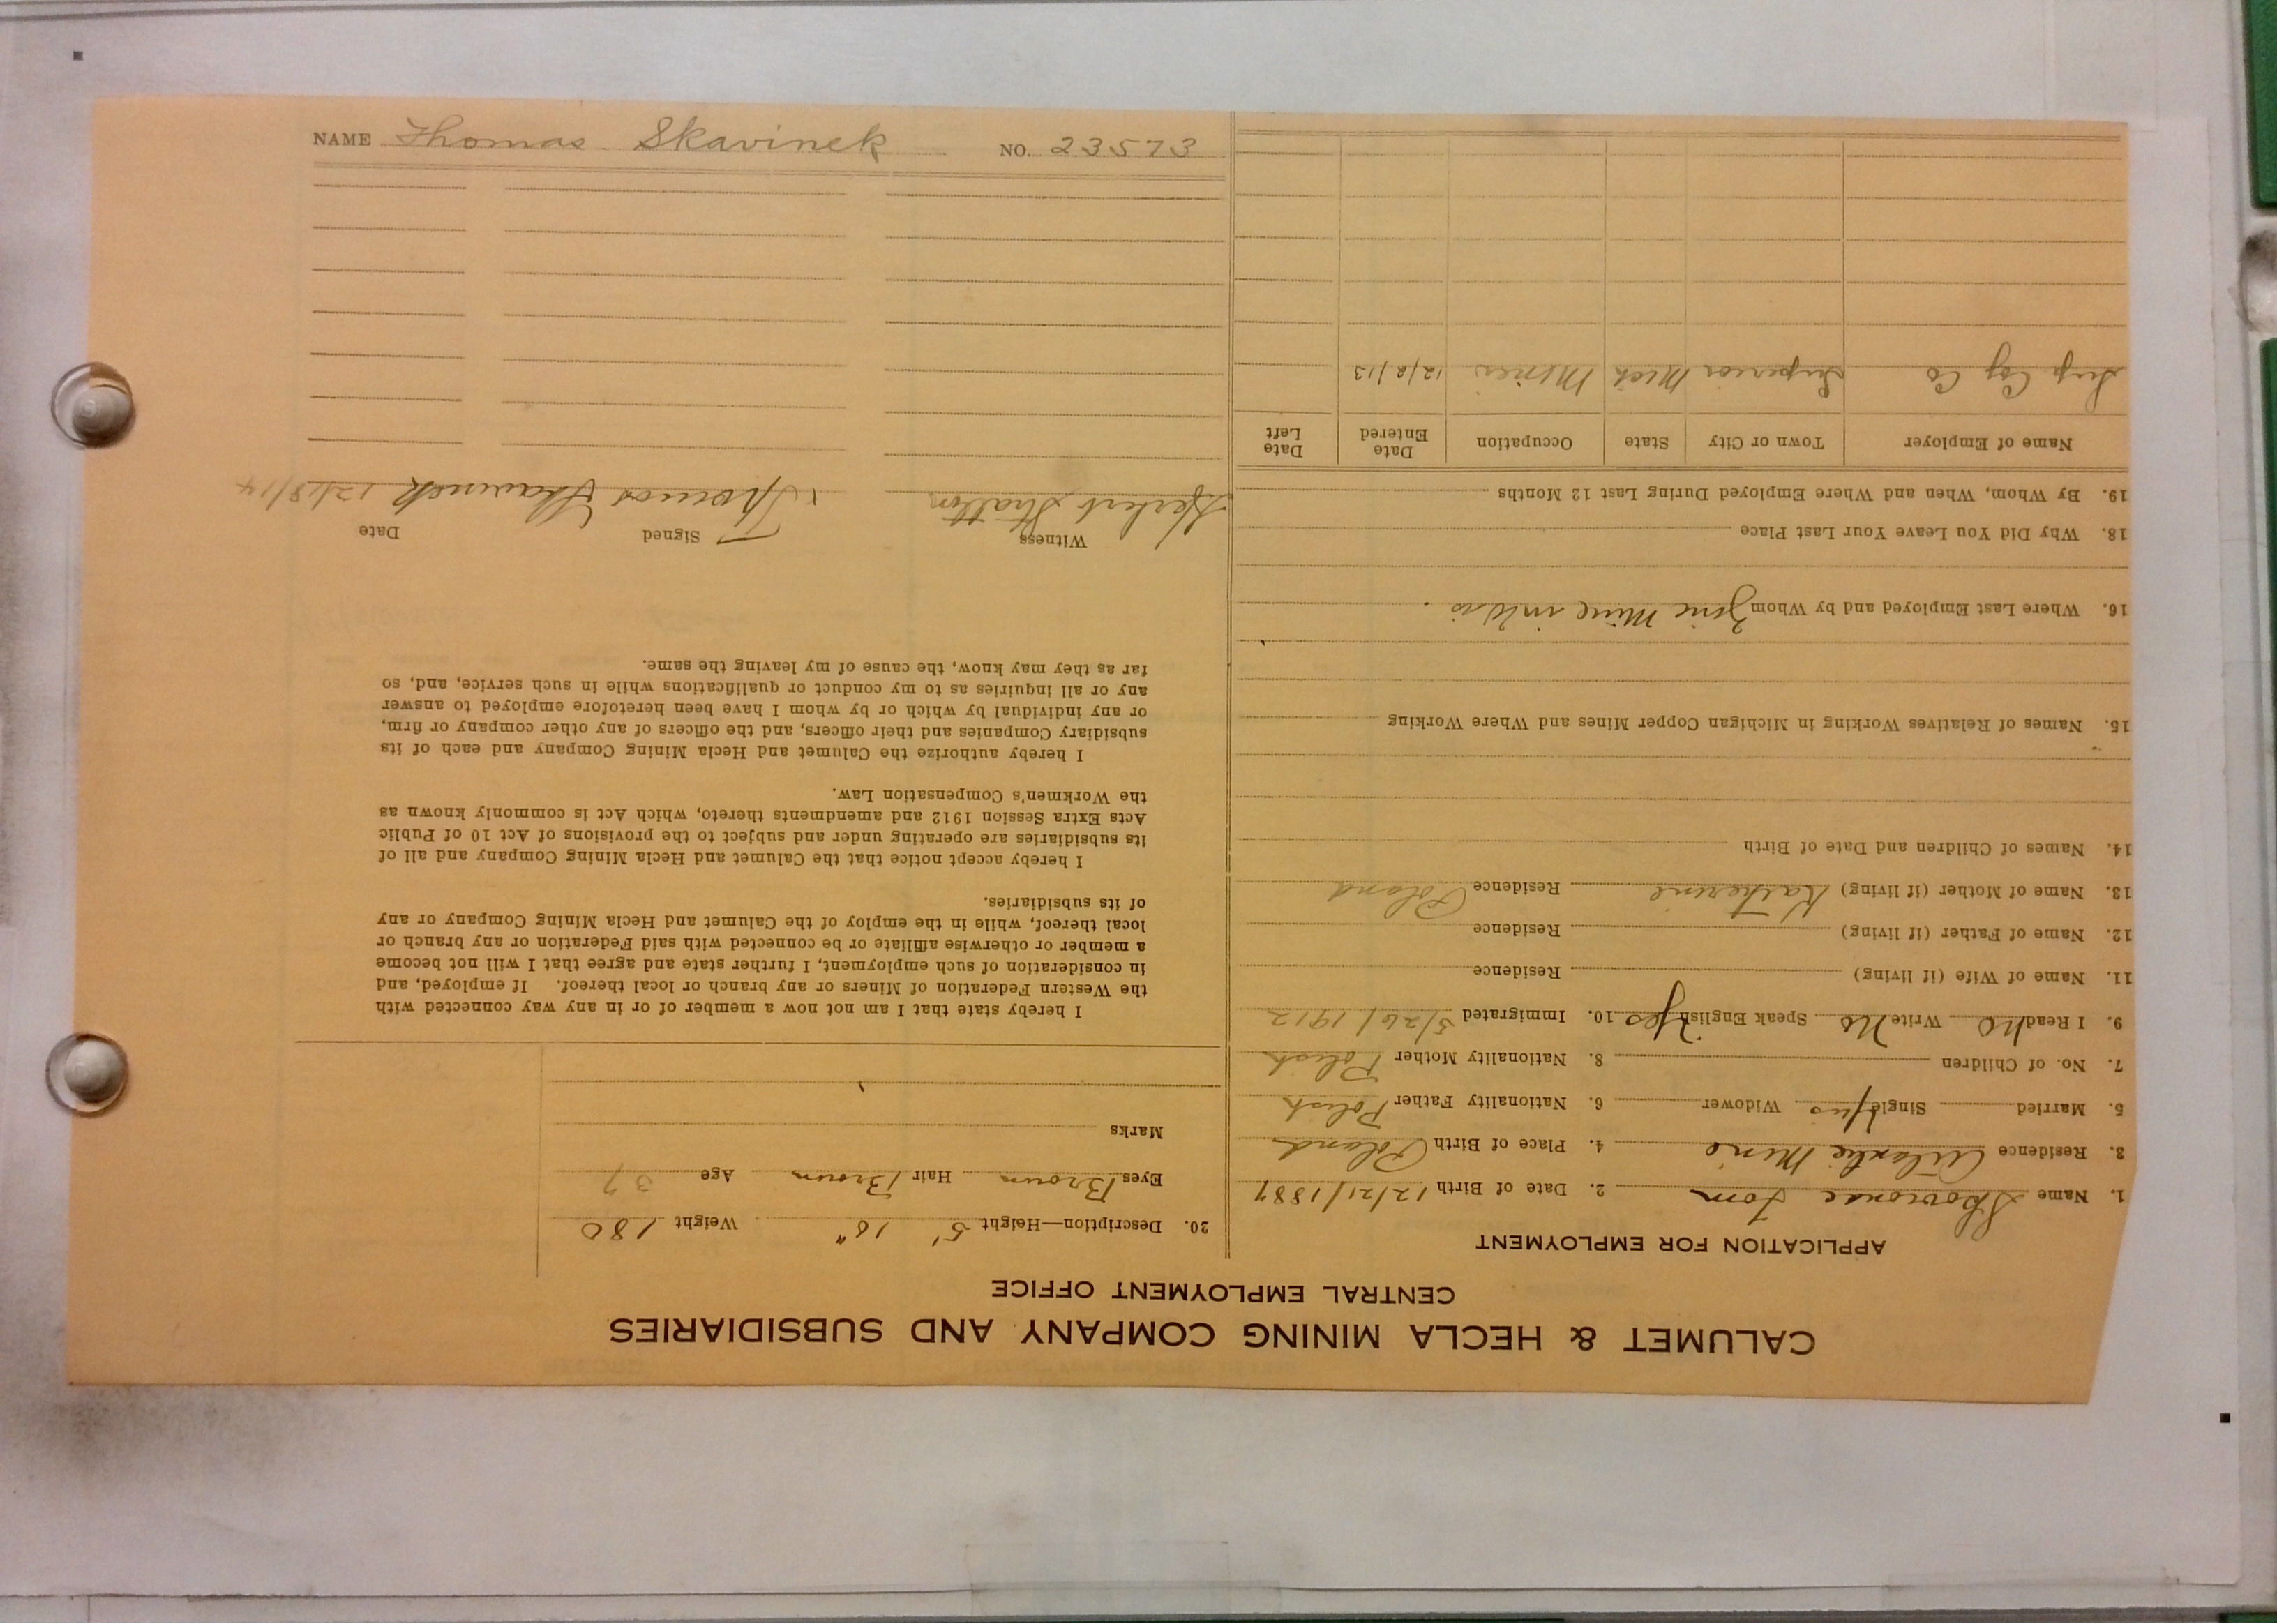 NAME Thomas Skavinek NO. 23573
CALUMET & HECLA MINING COMPANY AND SUBSIDIARIES
CENTRAL EMPLOYMENT OFFICE
APPLICATION FOR EMPLOYMENT
1. Name Skovronac Tom 2. Date of Birth 12/21/1887
3. Residence Atlantic Mine 4. Place of Birth Poland
5. Married Single Yes Widower 6. Nationality Father Polish
7. No. of Children 8. Nationality Mother Polish
9. I Read No Write No Speak English Yes 10. Immigrated 3/26/1912
11. Name of Wife (if living) Residence
12. Name of Father (if living) Residence
13. Name of Mother (if living) Katherine Residence Poland
14. Names of Children and Date of Birth
15. Names of Relatives Working in Michigan Copper Mines and Where Working
16. Where Last Employed and by Whom Zinc Mine in Wis.
18. Why Did You Leave Your Last Place
19. By Whom, When and Where Employed During Last 12 Months
Name of Employer Town or City State Occupation Date Entered Date Left
Sup Cop Co Superior Mich Miner 12/2/13
20. Description—Height 5' 10" Weight 180
Eyes Brown Hair Brown Age 37
Marks
I hereby state that I am not now a member of or in any way connected with
the Western Federation of Miners or any branch or local thereof. If employed, and
in consideration of such employment, I further state and agree that I will not become
a member or otherwise affiliate or be connected with said Federation or any branch or
local thereof, while in the employ of the Calumet and Hecla Mining Company or any
of its subsidiaries.
I hereby accept notice that the Calumet and Hecla Mining Company and all of
its subsidiaries are operating under and subject to the provisions of Act 10 of Public
Acts Extra Session 1912 and amendments thereto, which Act is commonly known as
the Workmen's Compensation Law.
I hereby authorize the Calumet and Hecla Mining Company and each of its
subsidiary Companies and their officers, and the officers of any other company or firm,
or any individual by which or by whom I have been heretofore employed to answer
any or all inquiries as to my conduct or qualifications while in such service, and, so
far as they may know, the cause of my leaving the same.
Witness Signed Date
Herbert Stratton x Thomas Skavinek 12/18/14